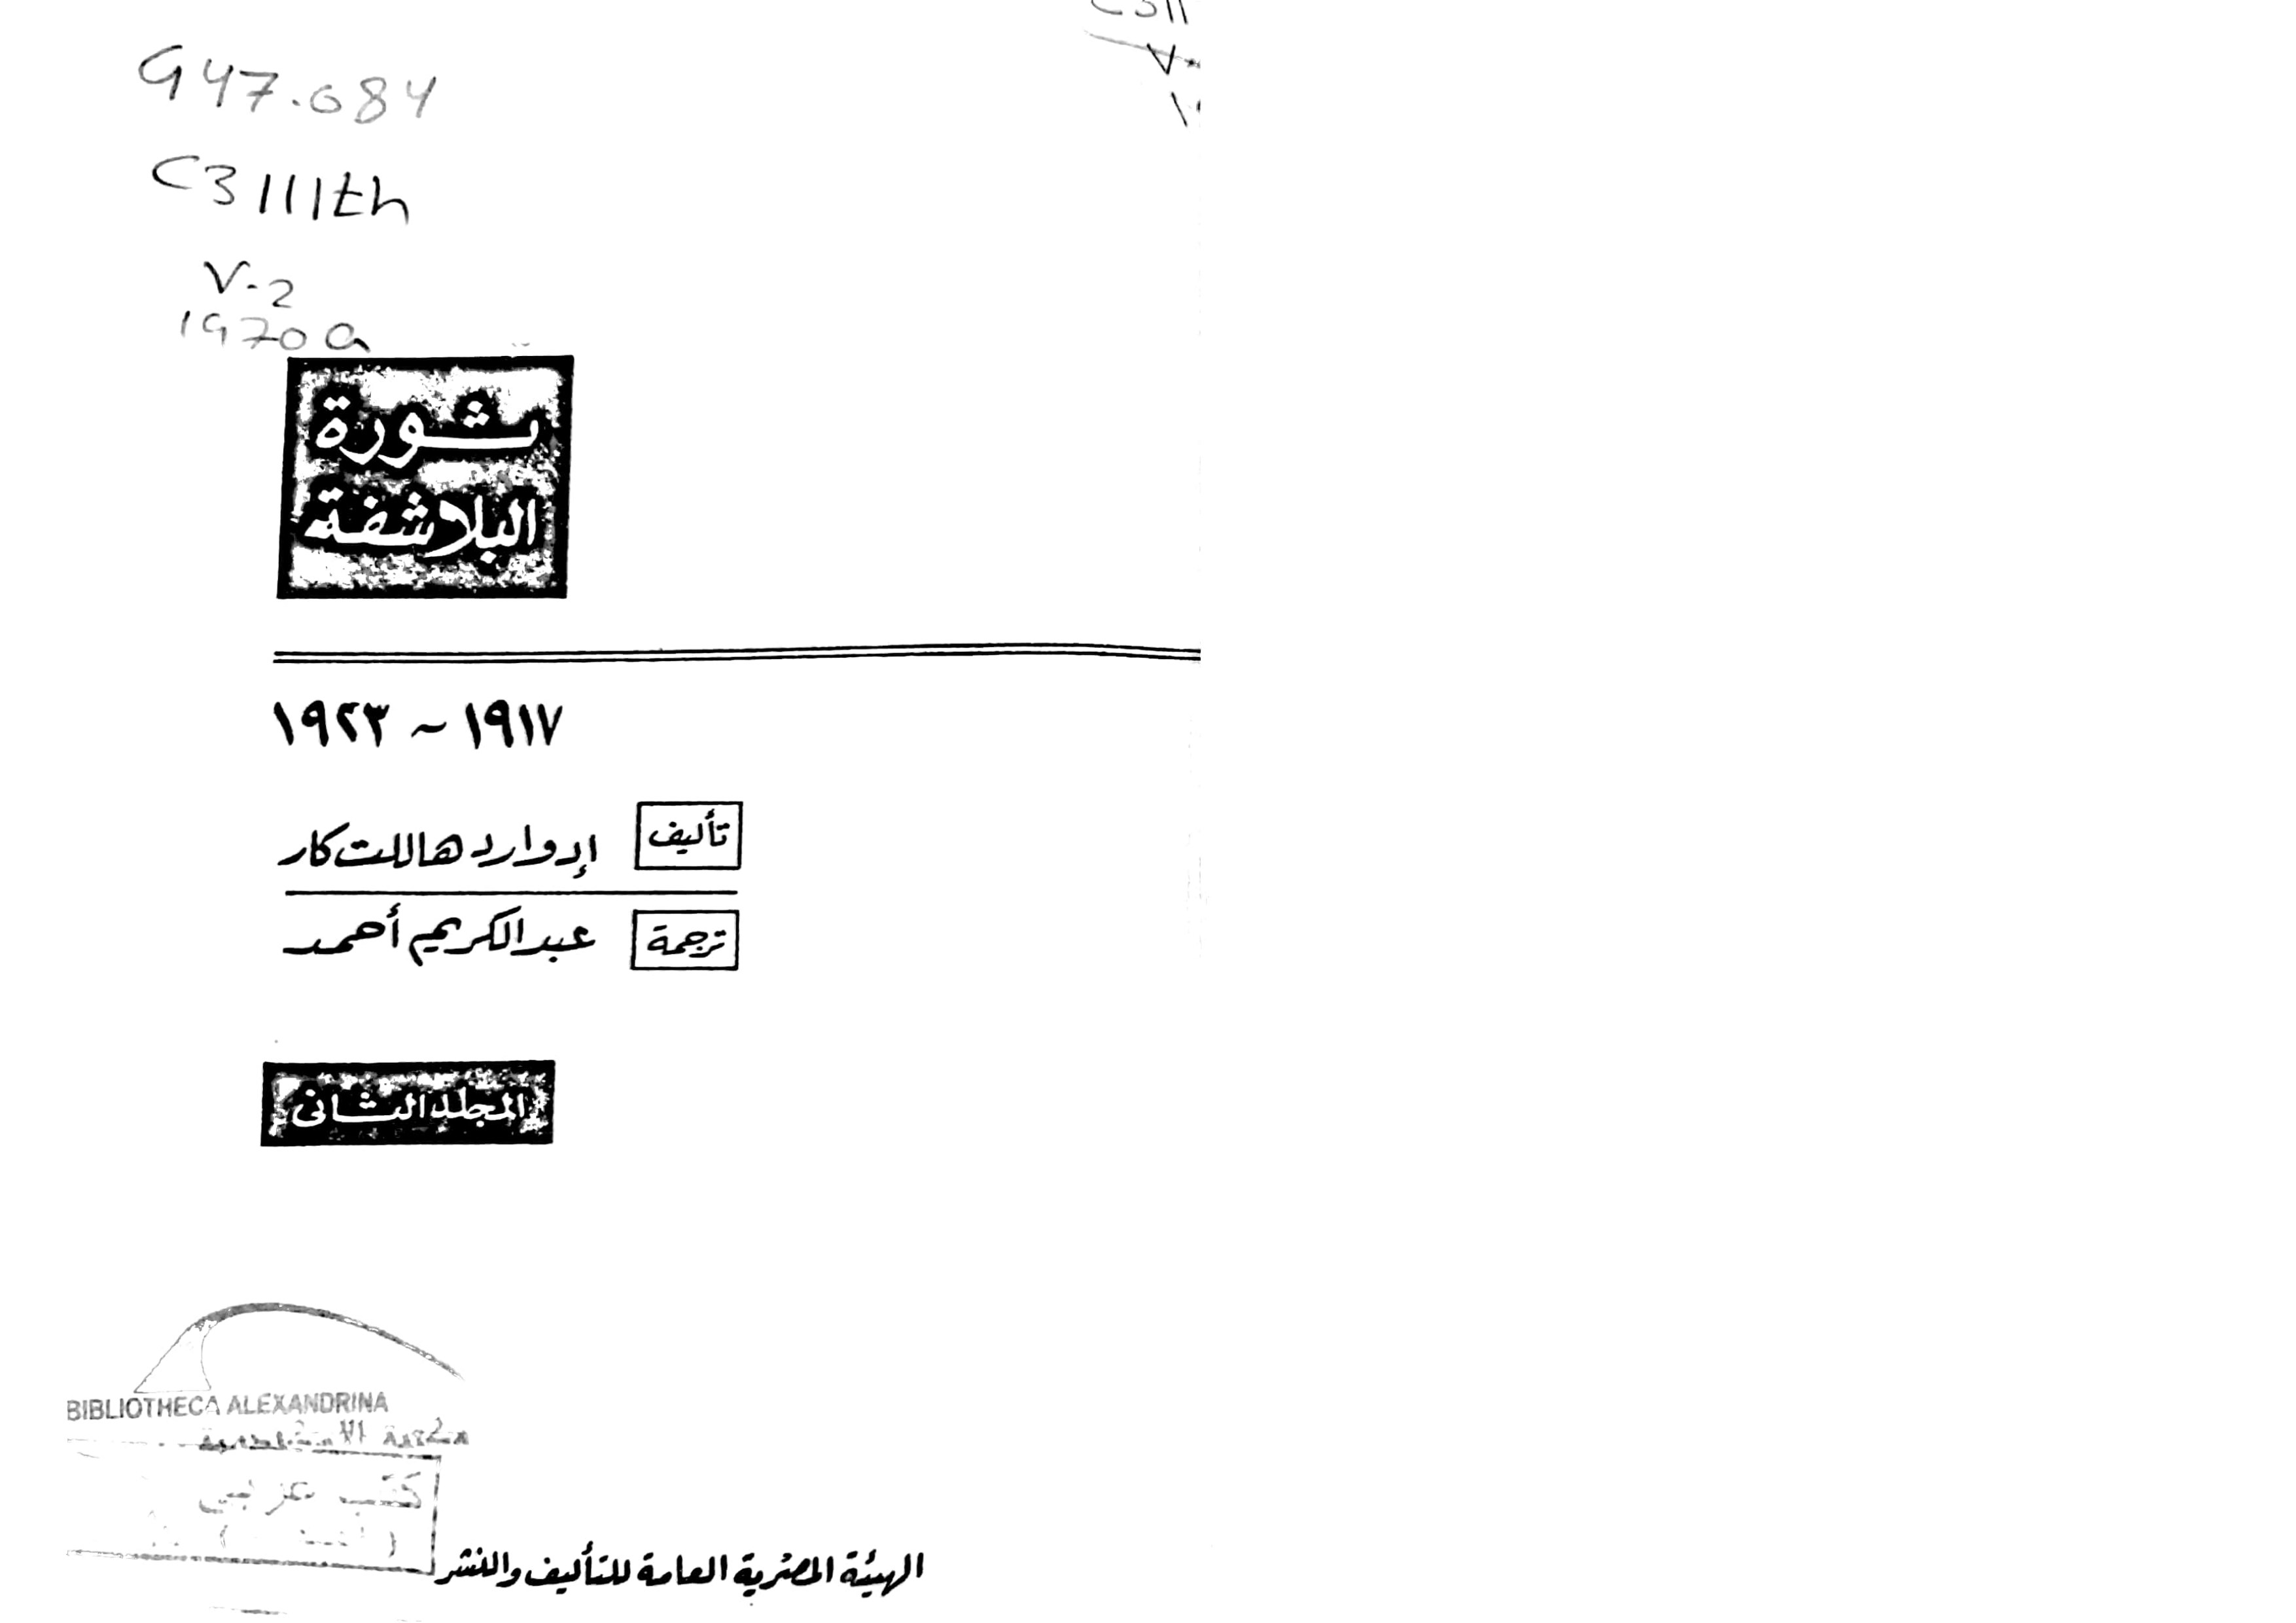 947.084
C3111th
V-2
1970a
ثورة
البلاشفة
١٩١٧ ~ ١٩٢٣
تأليف
إدوارد هاللت كار
ترجمة
عبد الكريم أحمد
المجلد الثانى
BIBLIOTHECA ALEXANDRINA
مكتبة الاسكندرية
كتب عربي
الهيئة المصرية العامة للتأليف والنشر